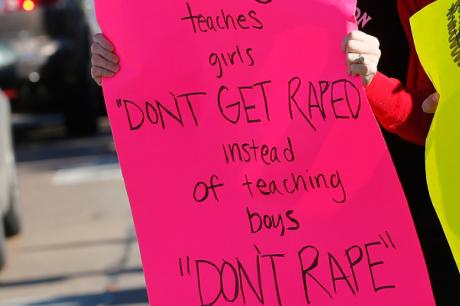 teaches
girls
"DON'T GET RAPED
instead
of teaching
boys
"DON'T RAPE"